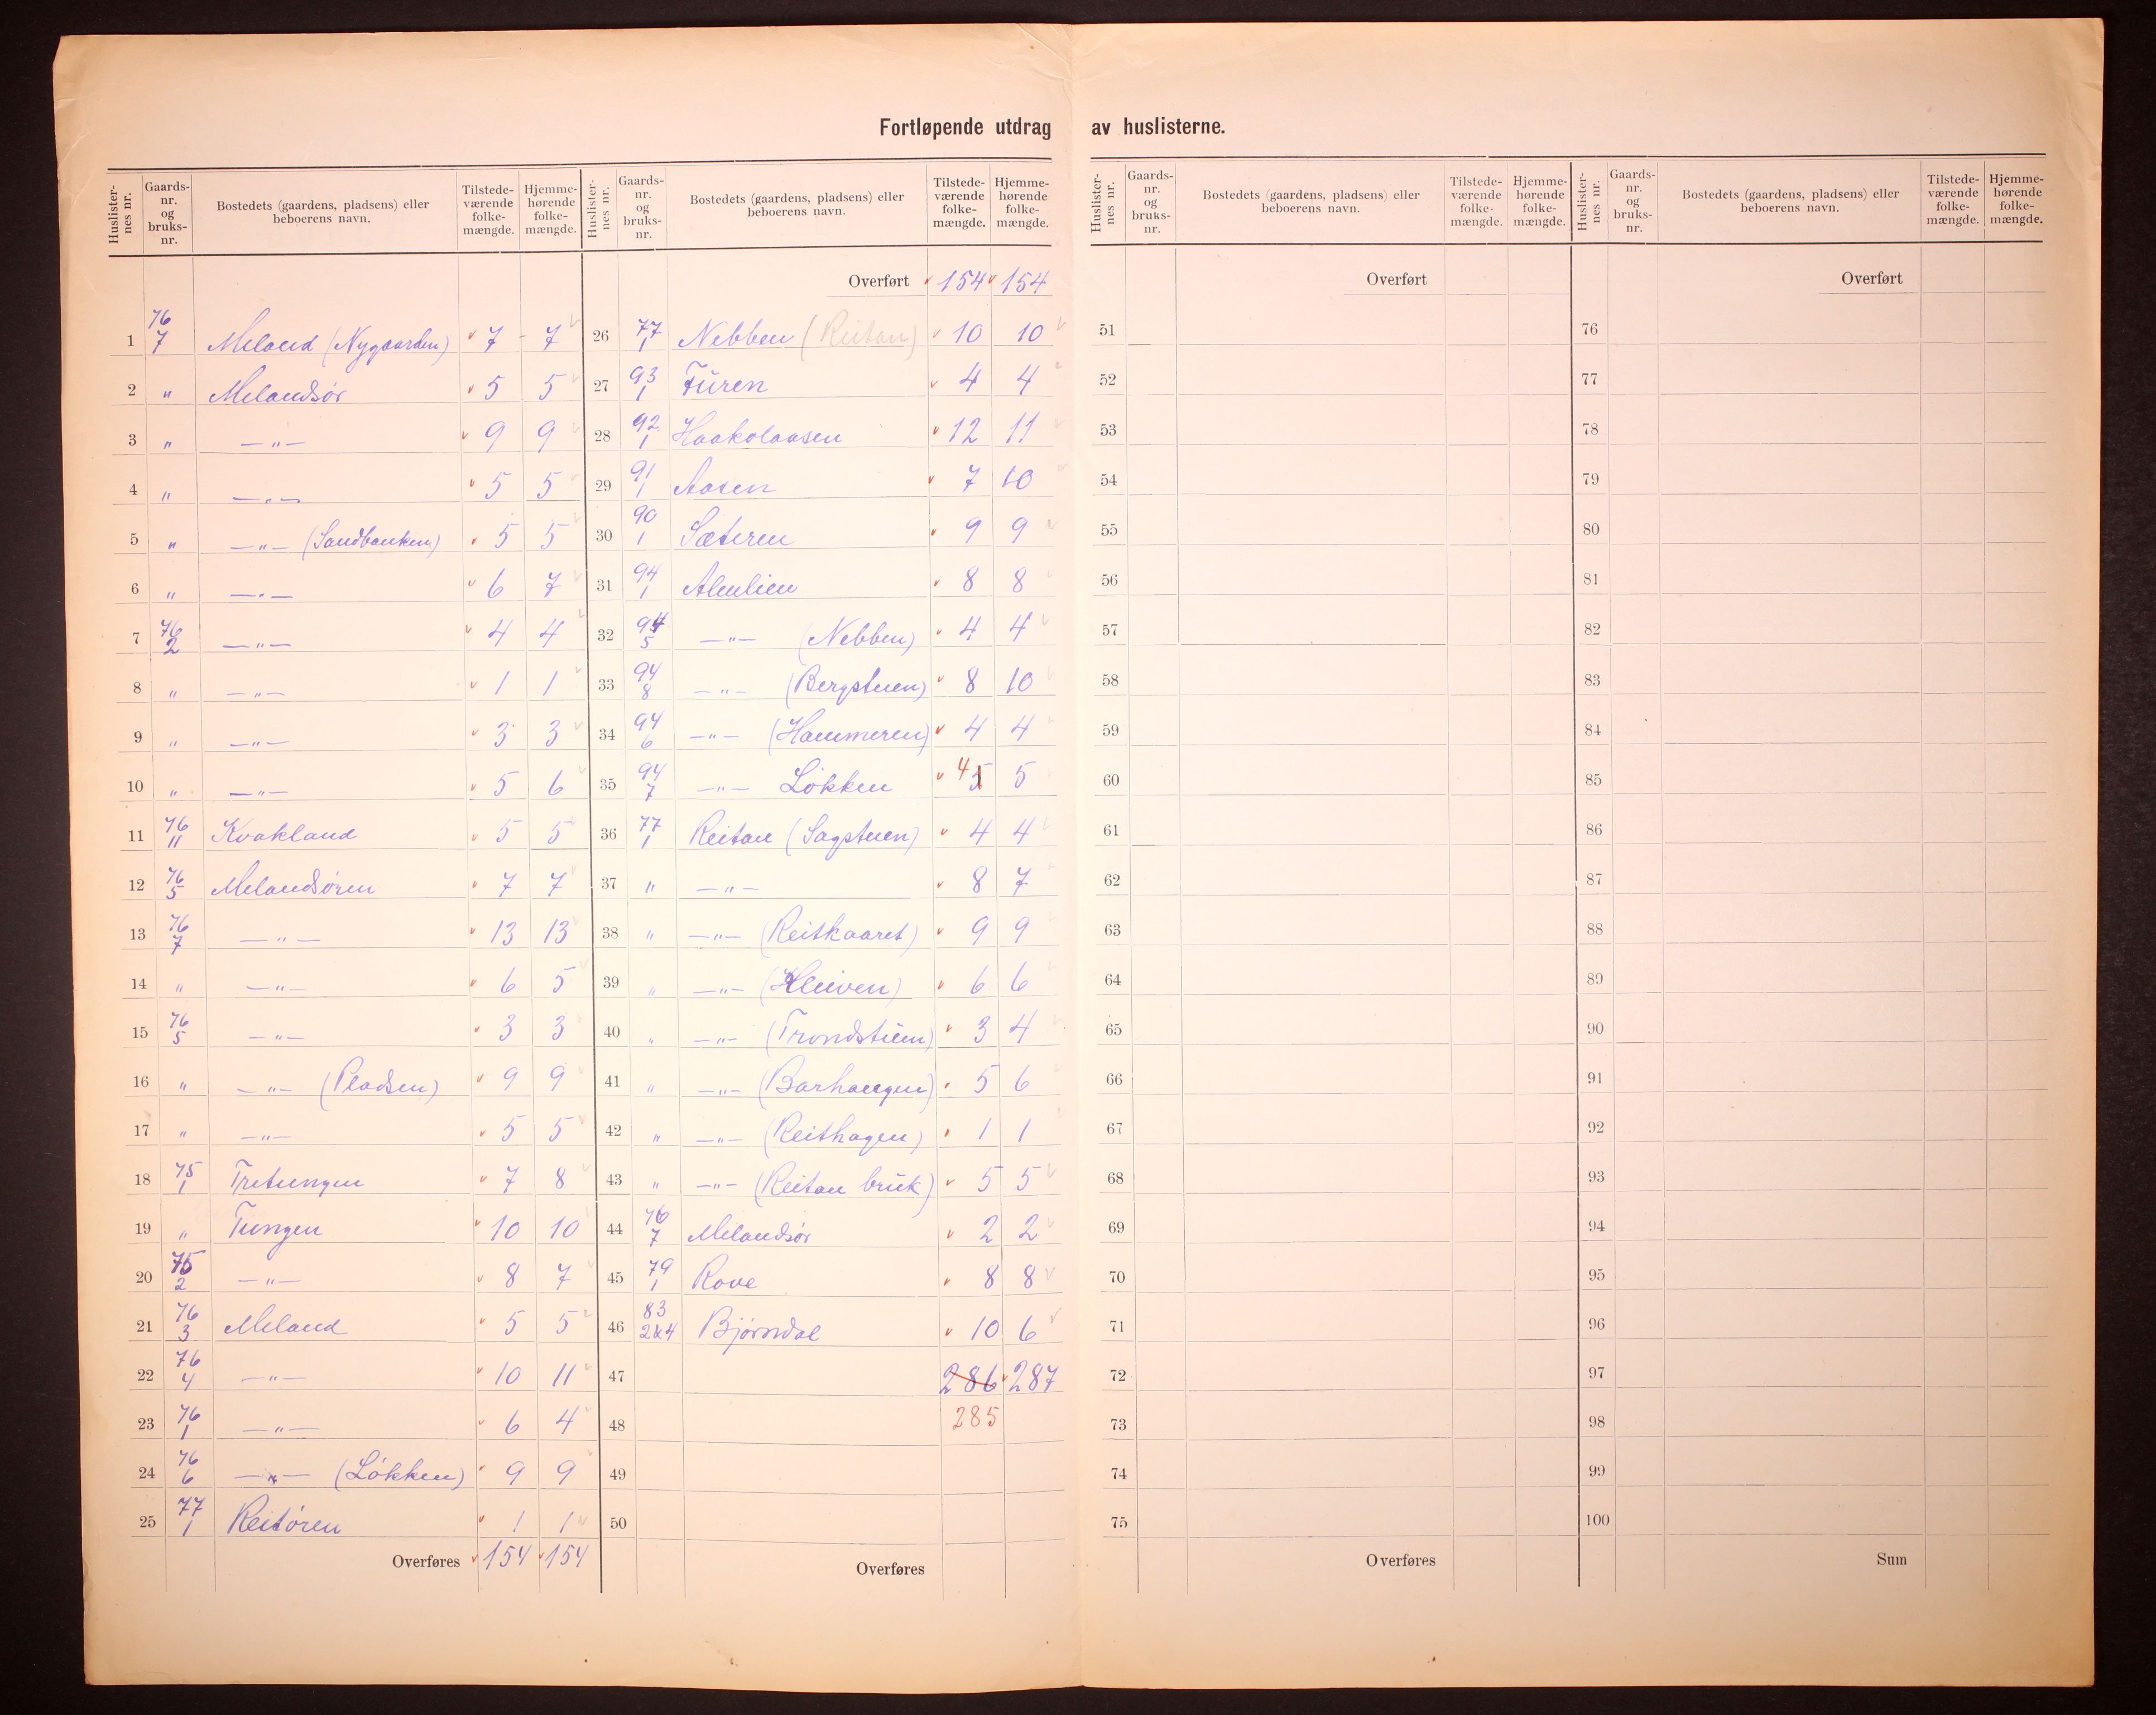 Fortløpende utdrag av huslisterne.
Huslisternes nr. | Gaards-nr. og bruks-nr. | Bostedets (gaardens, pladsens) eller beboerens navn. | Tilstedeværende folkemængde. | Hjemmehørende folkemængde.
1 76/7 Meland (Nygaarden) 7 - 7
2 " Melandsør 5 5
3 " —"— 9 9
4 " —"— 5 5
5 " —"— (Sandbanken) 5 5
6 " —"— 6 7
7 76/2 —"— 4 4
8 " —"— 1 1
9 " —"— 3 3
10 " —"— 5 6
11 76/11 Kvakland 5 5
12 76/5 Melandsøren 7 7
13 76/7 —"— 13 13
14 " —"— 6 5
15 76/5 —"— 3 3
16 " —"— (Pladsen) 9 9
17 " —"— 5 5
18 75/1 Tretungen 7 8
19 " Tungen 10 10
20 75/2 —"— 8 7
21 76/3 Meland 5 5
22 76/4 —"— 10 11
23 76/1 —"— 6 4
24 76/6 —"— (Løkken) 9 9
25 77/1 Reitøren 1 1
Overføres 154 154
Huslisternes nr. | Gaards-nr. og bruks-nr. | Bostedets (gaardens, pladsens) eller beboerens navn. | Tilstedeværende folkemængde. | Hjemmehørende folkemængde.
Overført 154 154
26 77/1 Nebben (Reitan) 10 10
27 93/1 Furen 4 4
28 92/1 Haakolaasen 12 11
29 91/1 Aasen 7 10
30 90/1 Sæteren 9 9
31 94/1 Almlien 8 8
32 94/5 —"— (Nebben) 4 4
33 94/8 —"— (Bergstuen) 8 10
34 94/6 —"— (Hammeren) 4 4
35 94/7 —"— Løkken 4 5 5
36 77/1 Reitan (Sagstuen) 4 4
37 " —"— 8 7
38 " —"— (Reitkaaret) 9 9
39 " —"— (Kleiven) 6 6
40 " —"— (Trondstuen) 3 4
41 " —"— (Barhaugen) 5 6
42 " —"— (Reithagen) 1 1
43 " —"— (Reitan bruk) 5 5
44 76/7 Melandsør 2 2
45 79/1 Rove 8 8
46 83/2&4 Bjørndal 10 6
47 286 287
48 285
49
50
Overføres
Huslisternes nr. | Gaards-nr. og bruks-nr. | Bostedets (gaardens, pladsens) eller beboerens navn. | Tilstedeværende folkemængde. | Hjemmehørende folkemængde.
Overført
51
52
53
54
55
56
57
58
59
60
61
62
63
64
65
66
67
68
69
70
71
72
73
74
75
Overføres
Huslisternes nr. | Gaards-nr. og bruks-nr. | Bostedets (gaardens, pladsens) eller beboerens navn. | Tilstedeværende folkemængde. | Hjemmehørende folkemængde.
Overført
76
77
78
79
80
81
82
83
84
85
86
87
88
89
90
91
92
93
94
95
96
97
98
99
100
Sum